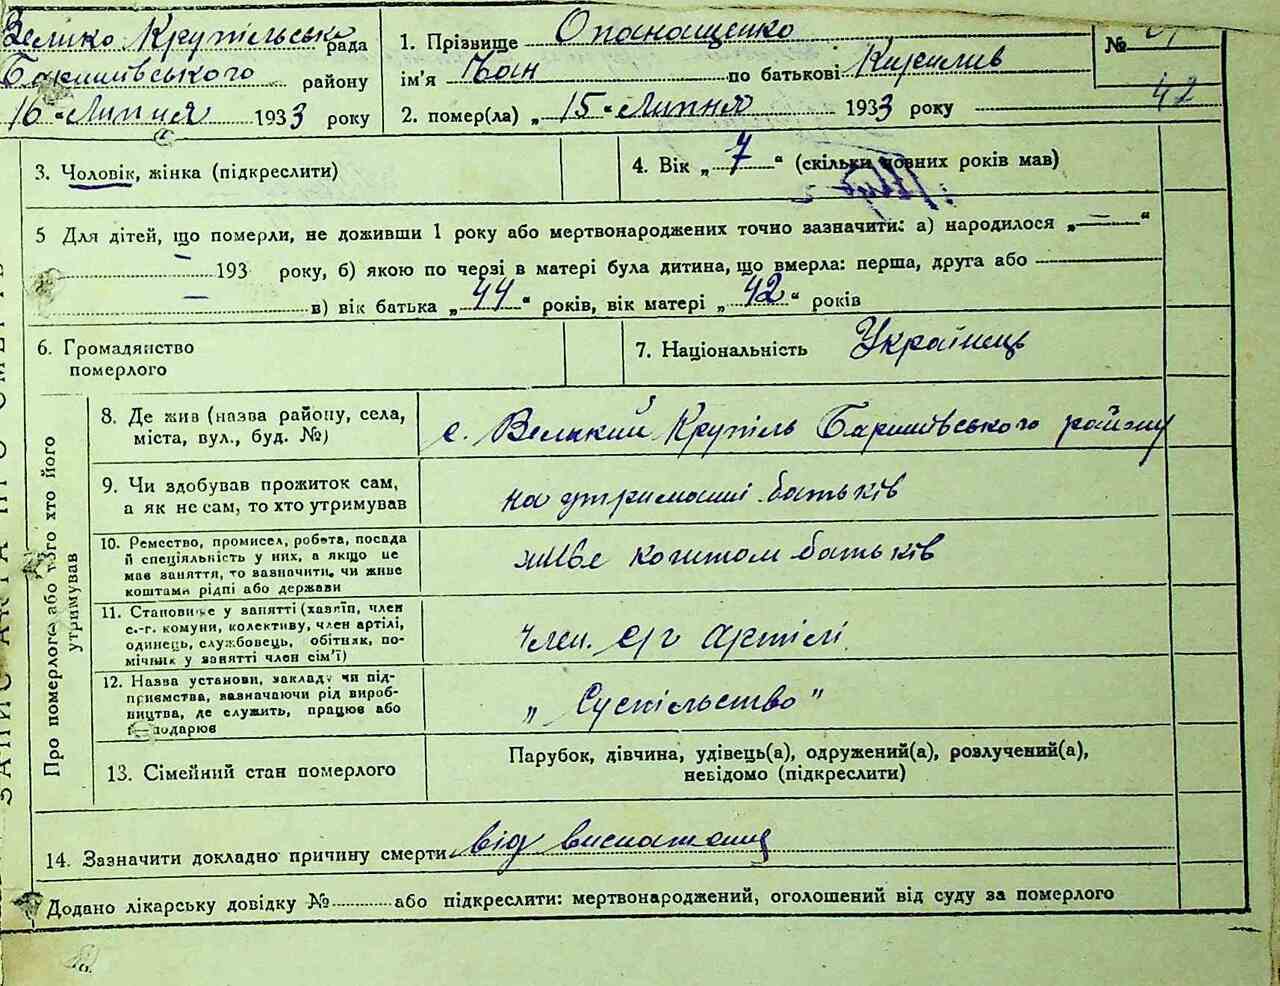 Велико Крупільська рада
Баришівського району
16 "Липня 1933 року
1. Прізвище Опанащенко
ім'я Іван по батькові Кирилив
2. помер(ла) „ 15 " Липня 1933 року
№
42
3. Чоловік, жінка (підкреслити)
4. Вік „ 7 " (скільки повних років мав)
5 Для дітей, що померли, не доживши 1 року або мертвонароджених точно зазначити: а) народилося „ — "
— 193 року, б) якою по черзі в матері була дитина, що вмерла: перша, друга або
— в) вік батька „ 44 " років, вік матері „ 42 " років
6. Громадянство
померлого
7. Національність Українець
Про померлого або того хто його
утримував
8. Де жив (назва району, села,
міста, вул., буд. №)
с. Великий Крупіль Баришівського району
9. Чи здобував прожиток сам,
а як не сам, то хто утримував
на утриманні батьків
10. Ремество, промисел, робота, посада
й спеціяльність у них, а якщо не
мав заняття, то зазначити, чи живе
коштами рідні або держави
живе коштом батьків
11. Становище у занятті (хазяїн, член
с.-г. комуни, колективу, член артілі,
одинець, службовець, робітник, по-
мічник у занятті член сім'ї)
член. с/г артілі
12. Назва установи, закладу чи під-
приємства, зазначаючи рід вироб-
ництва, де служить, працює або
господарює
„ Суспільство "
13. Сімейний стан померлого
Парубок, дівчина, удівець(а), одружений(а), розлучений(а),
невідомо (підкреслити)
14. Зазначити докладно причину смерти від виснаження
Додано лікарську довідку № або підкреслити: мертвонароджений, оголошений від суду за померлого